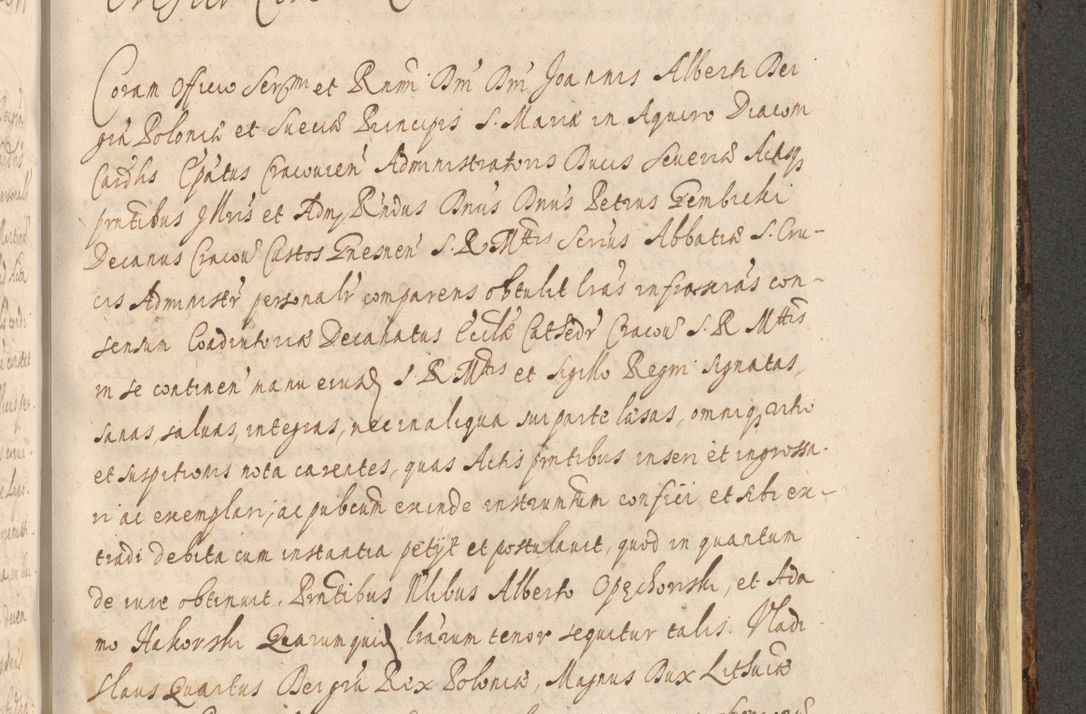 Coram Officio Sermi et Rndmi Dni Dni Joannis Alberti Dei
gra Poloniæ et Sueciæ Principis S. Mariæ in Aquiro Diacom
Cardlis Epatus Cracovien Administratoris Ducis Severiæ Actisq
prntibus Jllris et Admr Rndus Dnus Dnus Petrus Gembicki
Decanus Cracov Custos Gnesnen S. R. Mttis Scrius Abbatiæ S. Cru-
cis Administr personalr comparens obtulit lras infrascras con-
sensum Coadiutoriæ Decanatus Ecclæ Cathedr Cracov S. R Mttis
in se continen manu eiusd S. R. Mttis et Sigillo Regni Signatas,
sanas, salvas, integras, nec in aliqua sui parte læsas, omniq vitio
et suspitionis nota carentes, quas Actis prntibus inseri et ingrossa-
ri ac exemplari, ac pubcum exinde instrumtum confici et sibi ex-
tradi debita cum instantia petijt et postulavit, quod in quantum
de iure obtinuit. Prntibus Nlibus Alberto Opęchowski, et Ada
mo Hakowski Quarumquid lrarum tenor sequitur talis. Vladi
slaus Quartus Dei gra Rex Poloniæ, Magnus Dux Lithuaniæ